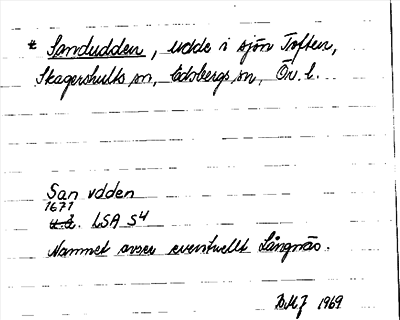 * Sandudden, udde i sjön Toften,
Skagershults sn, Edsbergs sn, Ör. l.
San vdden
1671
u.å. LSA S4
Namnet avser eventuellt Långnäs.
DMJ 1969